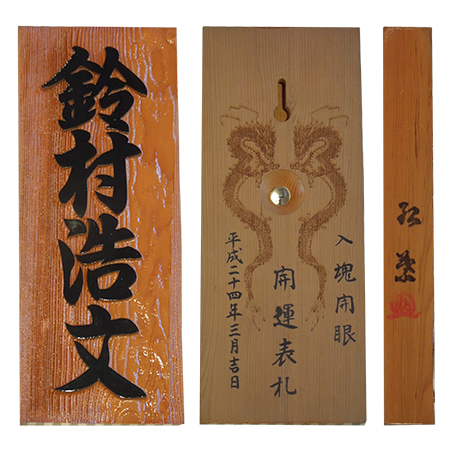 鈴村浩文
入魂開眼
開運表札
平成二十四年三月吉日